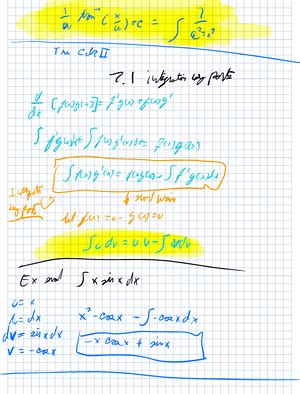 1/a tan⁻¹(x/a)+c = ∫
The Calc II
7.1 integration by parts
d/dx [f(x)g(x)] = f'g(x)+f(x)g'
∫f'g(x)dx + ∫f(x)g'(x)dx = f(x)g(x)
∫f(x)g'(x) = f(x)g(x) - ∫f'g(x)dx
by parts
let f(x)=u g(x)=v
∫u dv = uv - ∫vdu
Ex ∫x sin x dx
u = x
= dx
dv = sin x dx
v = -cos x
x · -cos x - ∫-cos x dx
-x cos x + sin x